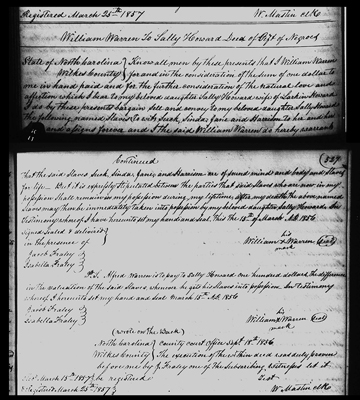 Registered March 25th 1857 W. Mastin clk
William Warren To Sally Howard Deed of Gift of Negroes
State of North Carolina } Know all men by these presents that I William Warren
Wilkes County } for and in the consideration of the sum of one dollar to
me in hand paid and for the further consideration of the natural love and
affection which I bear to my beloved daughter Sally Howard wife of Larkin Howard
I do by these presents bargain sell and convey to my beloved daughter Sally Howard
the following named Slaves to wit Suck, Linda, Jane and Harrison to her and her
and assigns forever and I the said William Warren do hereby warrant
Continued 329
that the said Slaves Suck, Linda, Jane, and Harrison are of sound mind and body and slaves
for life. But it is expressly stipulated between the parties that said Slaves who are now in my
possession shall remain in my possession during my lifetime, after my death the above named
Slaves may then be immediately taken into possession by my beloved daughter Sally Howard. In
testimony whereof I have hereunto set my hand and seal. This the 18th of March AD. 1856
signed sealed & delivered
in the presence of his
Jacob Fraley } William x Warren (Seal)
Isabella Fraley } mark
P.S. Alfred Warren is to pay to Sally Howard one hundred dollars the difference
in the valuation of the said Slaves when he gets his Slaves into possession. In testimony
whereof I hereunto set my hand and seal March 18th AD. 1856
Jacob Fraley } his
Isabella Fraley } William x Warren (Seal)
mark
(wrote on the Back)
North Carolina } County Court Office Sept 18th 1856
Wilkes County } The execution of the within deed was duly proven
before me by J. Fraley one of the subscribing witnesses let it
be registered Test
Registered March 25th 1857 } W. Mastin clk